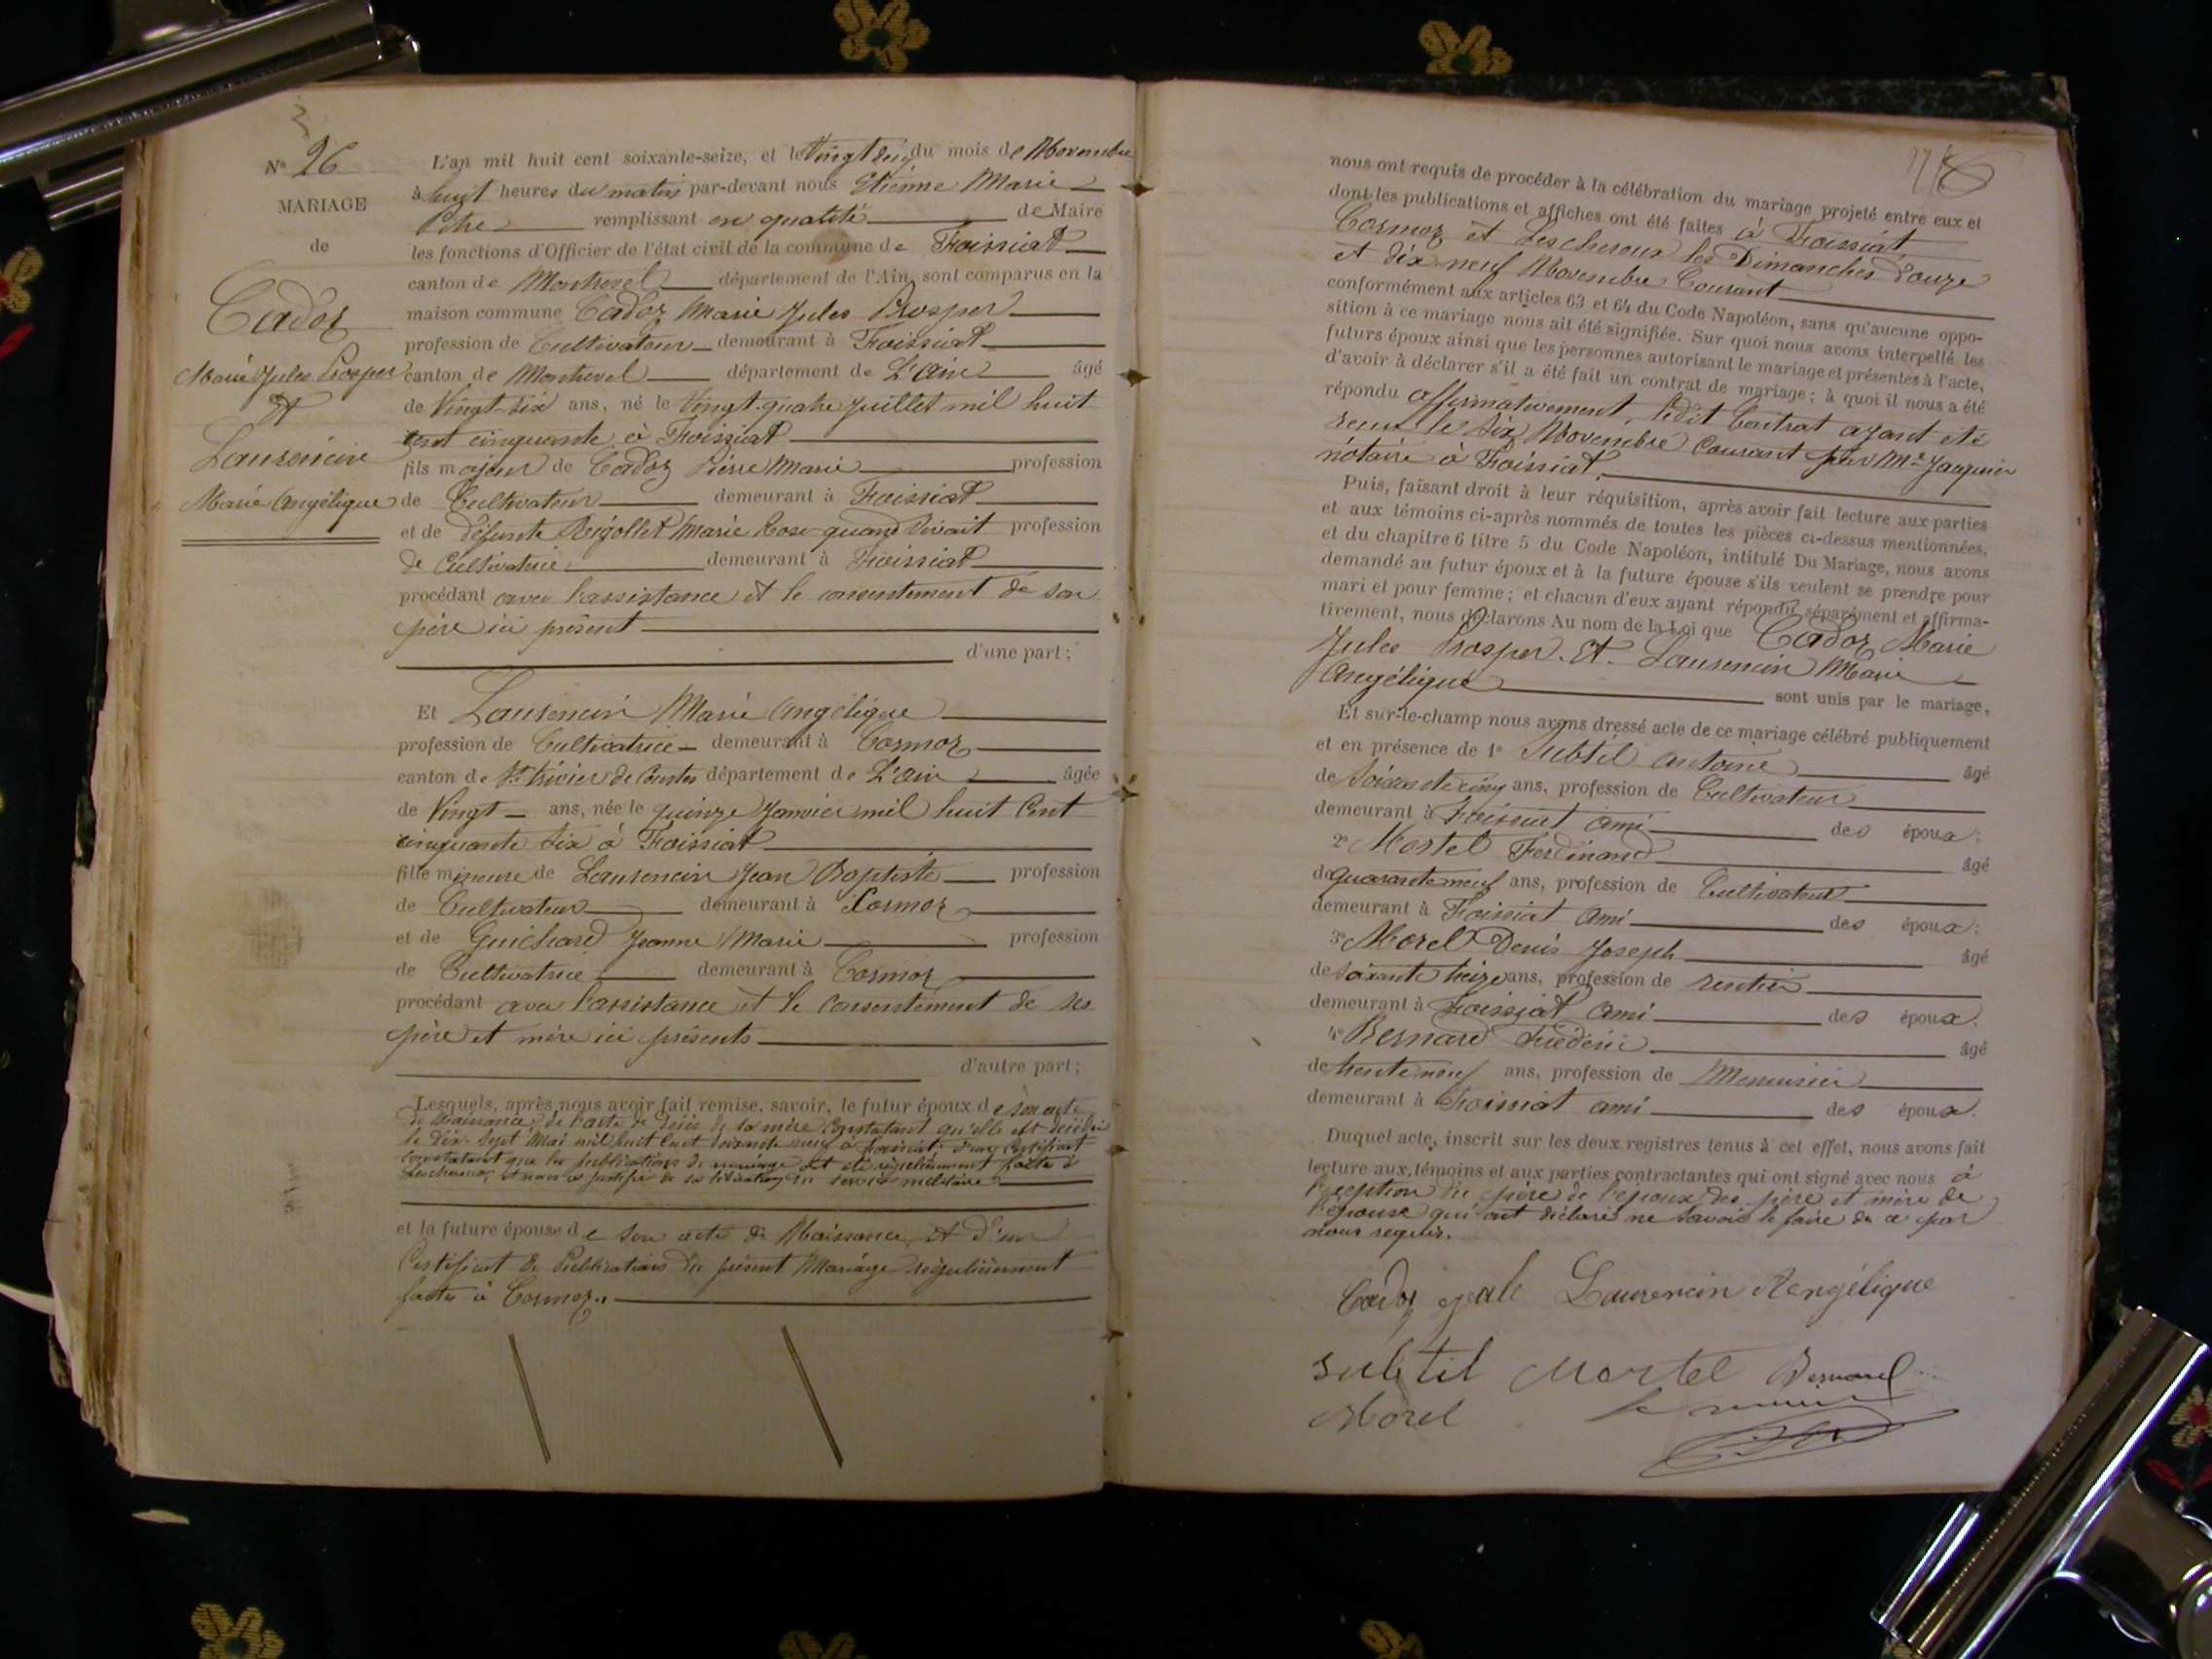 N° 26
MARIAGE
de
Cadoz
Marie Jules Prosper
Et
Laurencin
Marie Angélique
L'an mil huit cent soixante-seize, et le Vingt du mois de Novembre
à huit heures du matin par-devant nous Etienne Marie
remplissant en qualité de Maire
les fonctions d'Officier de l'état civil de la commune de Foissiat
canton de Montrevel département de l'Ain, sont comparus en la
maison commune Cadoz Marie Jules Prosper
profession de Cultivateur demeurant à Foissiat
canton de Montrevel département de L'ain âgé
de Vingt-six ans, né le Vingt-quatre Juillet mil huit
cent cinquante à Foissiat
fils majeur de Cadoz Pierre Marie profession
de Cultivateur demeurant à Foissiat
et de défunte Rigollet Marie Rose quand Vivait profession
de Cultivatrice demeurant à Foissiat
procédant avec l'assistance et le consentement de son
père ici présent
d'une part;
Et Laurencin Marie Angélique
profession de Cultivatrice demeurant à Cormoz
canton de St Trivier de Courtes département de L'ain âgée
de Vingt ans, née le quinze Janvier mil huit Cent
cinquante six à Foissiat
fille mineure de Laurencin Jean Baptiste profession
de Cultivateur demeurant à Cormoz
et de Guichard Jeanne Marie profession
de Cultivatrice demeurant à Cormoz
procédant avec l'assistance et le consentement de ses
père et mère ici présents
d'autre part;
Lesquels, après nous avoir fait remise, savoir, le futur époux de son acte
de Naissance, de l'acte de décès de sa mère Constatant qu'elle est décédée
le Dix-sept Mai mil huit Cent soixante neuf à Foissiat, d'un Certificat
constatant que les publications de mariage ont été régulièrement faites à
Lescheroux, et nous a justifié de sa libération du service militaire
et la future épouse de son acte de Naissance et d'un
Certificat de Publications du présent Mariage régulièrement
faites à Cormoz.
nous ont requis de procéder à la célébration du mariage projeté entre eux et
dont les publications et affiches ont été faites à Foissiat
Cormoz et Lescheroux les Dimanches Douze
et dix neuf Novembre Courant
conformément aux articles 63 et 64 du Code Napoléon, sans qu'aucune oppo-
sition à ce mariage nous ait été signifiée. Sur quoi nous avons interpellé les
futurs époux ainsi que les personnes autorisant le mariage et présentes à l'acte,
d'avoir à déclarer s'il a été fait un contrat de mariage; à quoi il nous a été
répondu affirmativement, ledit Contrat ayant été
reçu le six Novembre Courant par Me Jacquier
notaire à Foissiat.
Puis, faisant droit à leur réquisition, après avoir fait lecture aux parties
et aux témoins ci-après nommés de toutes les pièces ci-dessus mentionnées,
et du chapitre 6 titre 5 du Code Napoléon, intitulé Du Mariage, nous avons
demandé au futur époux et à la future épouse s'ils veulent se prendre pour
mari et pour femme; et chacun d'eux ayant répondu séparément et affirma-
tivement, nous déclarons Au nom de la Loi que Cadoz Marie
Jules Prosper Et Laurencin Marie
Angélique sont unis par le mariage,
Et sur-le-champ nous avons dressé acte de ce mariage célébré publiquement
et en présence de 1° Subtil Antoine âgé
de Soixante cinq ans, profession de Cultivateur
demeurant à Foissiat ami des époux;
2° Mortel Ferdinand âgé
de quarante neuf ans, profession de Cultivateur
demeurant à Foissiat ami des époux;
3° Morel Denis Joseph âgé
de soixante treize ans, profession de rentier
demeurant à Foissiat ami des époux.
4° Bernard Frédéric âgé
de trente neuf ans, profession de Menuisier
demeurant à Foissiat ami des époux.
Duquel acte, inscrit sur les deux registres tenus à cet effet, nous avons fait
lecture aux témoins et aux parties contractantes qui ont signé avec nous à
l'exception du père de l'époux, des père et mère de
l'épouse qui ont déclaré ne savoir le faire de ce par
nous requis.
Cadoz Laurencin Angélique
subtil Mortel Bernard
Morel